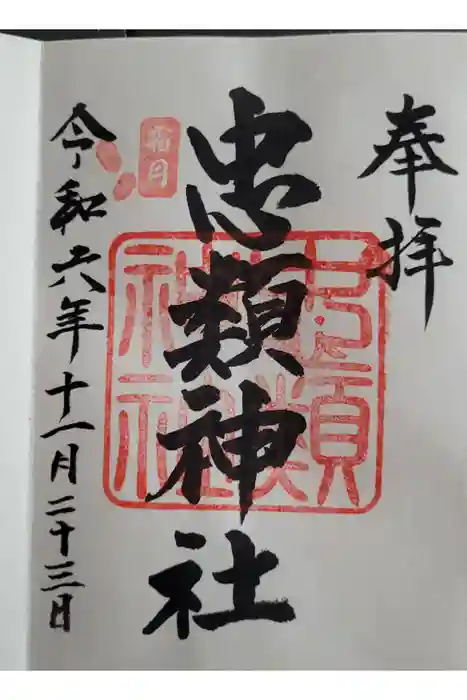 奉拝
忠類神社
忠類神社
霜月
令和六年十一月二十三日